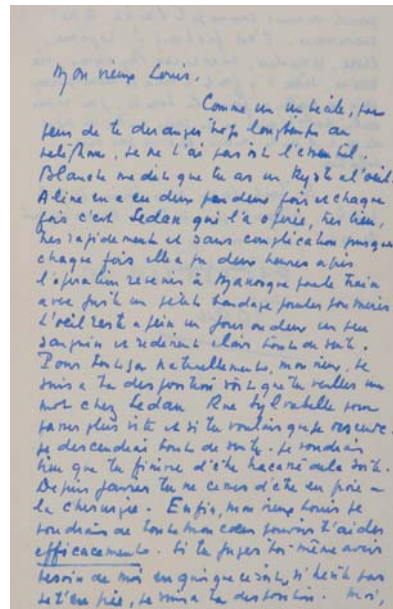 Mon vieux Louis.
Comme un imbécile, par
peur de te déranger trop longtemps au
téléphone, je ne t'ai pas dit l'essentiel.
Blanche me dit que tu as un kyste à l'œil.
Aline en a eu deux par deux fois et chaque
fois c'est Sedan qui l'a opérée, très bien,
très rapidement et sans complication puisque
chaque fois elle a pu deux heures après
l'opération revenir à Manosque par le train
avec juste un petit bandage
L'œil reste à peine un jour ou deux un peu
sanguin et redevient clair tout de suite.
Pour tout ça naturellement, mon vieux, je
suis à ta disposition soit que tu veuilles un
mot chez Sedan Rue Sylvabelle pour
passer plus vite et si tu voulais que je
je descendrais tout de suite. Je voudrais
bien que tu finisses d'être de la sorte.
Depuis tu ne cesses d'être en proie à
la chirurgie. Enfin, mon vieux Louis je
voudrais de tout mon cœur pouvoir t'aider
efficacement. Si tu juges toi-même avoir
besoin de moi en quoi que ce soit, n'hésite pas
je t'en prie, je suis à ta disposition. Moi,